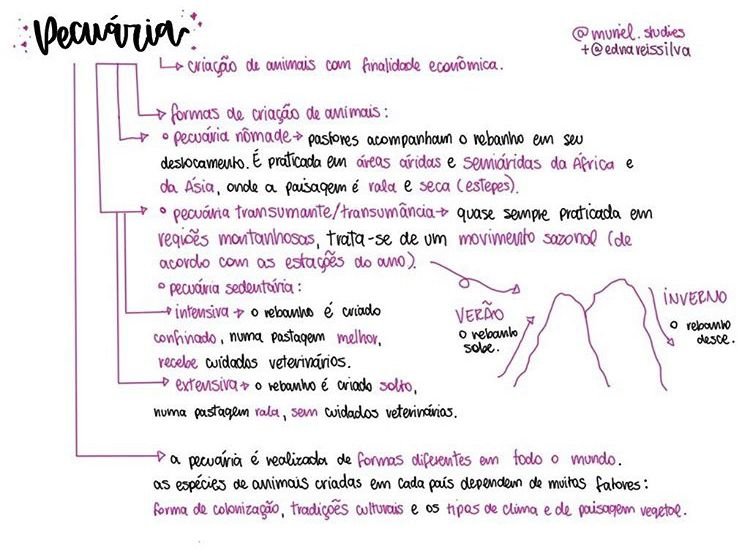 Pecuária
@muriel.studies
+@ednareissilva
→ criação de animais com finalidade econômica.
→ formas de criação de animais:
° pecuária nômade → pastores acompanham o rebanho em seu
deslocamento. É praticada em áreas áridas e semiáridas da África e
da Ásia, onde a paisagem é rala e seca (estepes).
° pecuária transumante/transumância → quase sempre praticada em
regiões montanhosas, trata-se de um movimento sazonal (de
acordo com as estações do ano).
° pecuária sedentária:
→ intensiva → o rebanho é criado
confinado, numa pastagem melhor,
recebe cuidados veterinários.
→ extensiva → o rebanho é criado solto,
numa pastagem rala, sem cuidados veterinários.
VERÃO
o rebanho
sobe.
INVERNO
o rebanho
desce.
→ a pecuária é realizada de formas diferentes em todo o mundo.
as espécies de animais criadas em cada país dependem de muitos fatores:
forma de colonização, tradições culturais e os tipos de clima e de paisagem vegetal.